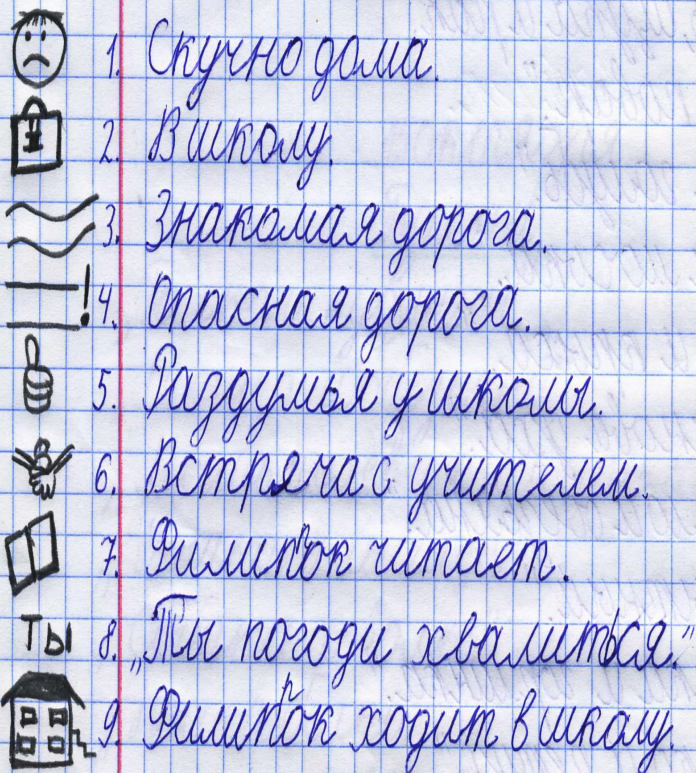 1. Скучно дома.
2. В школу.
3. Знакомая дорога.
4. Опасная дорога.
5. Раздумья у школы.
6. Встряча с учителем.
7. Филиппок читает.
ТЫ 8. „Ты погоди хвалиться."
9. Филиппок ходит в школу.